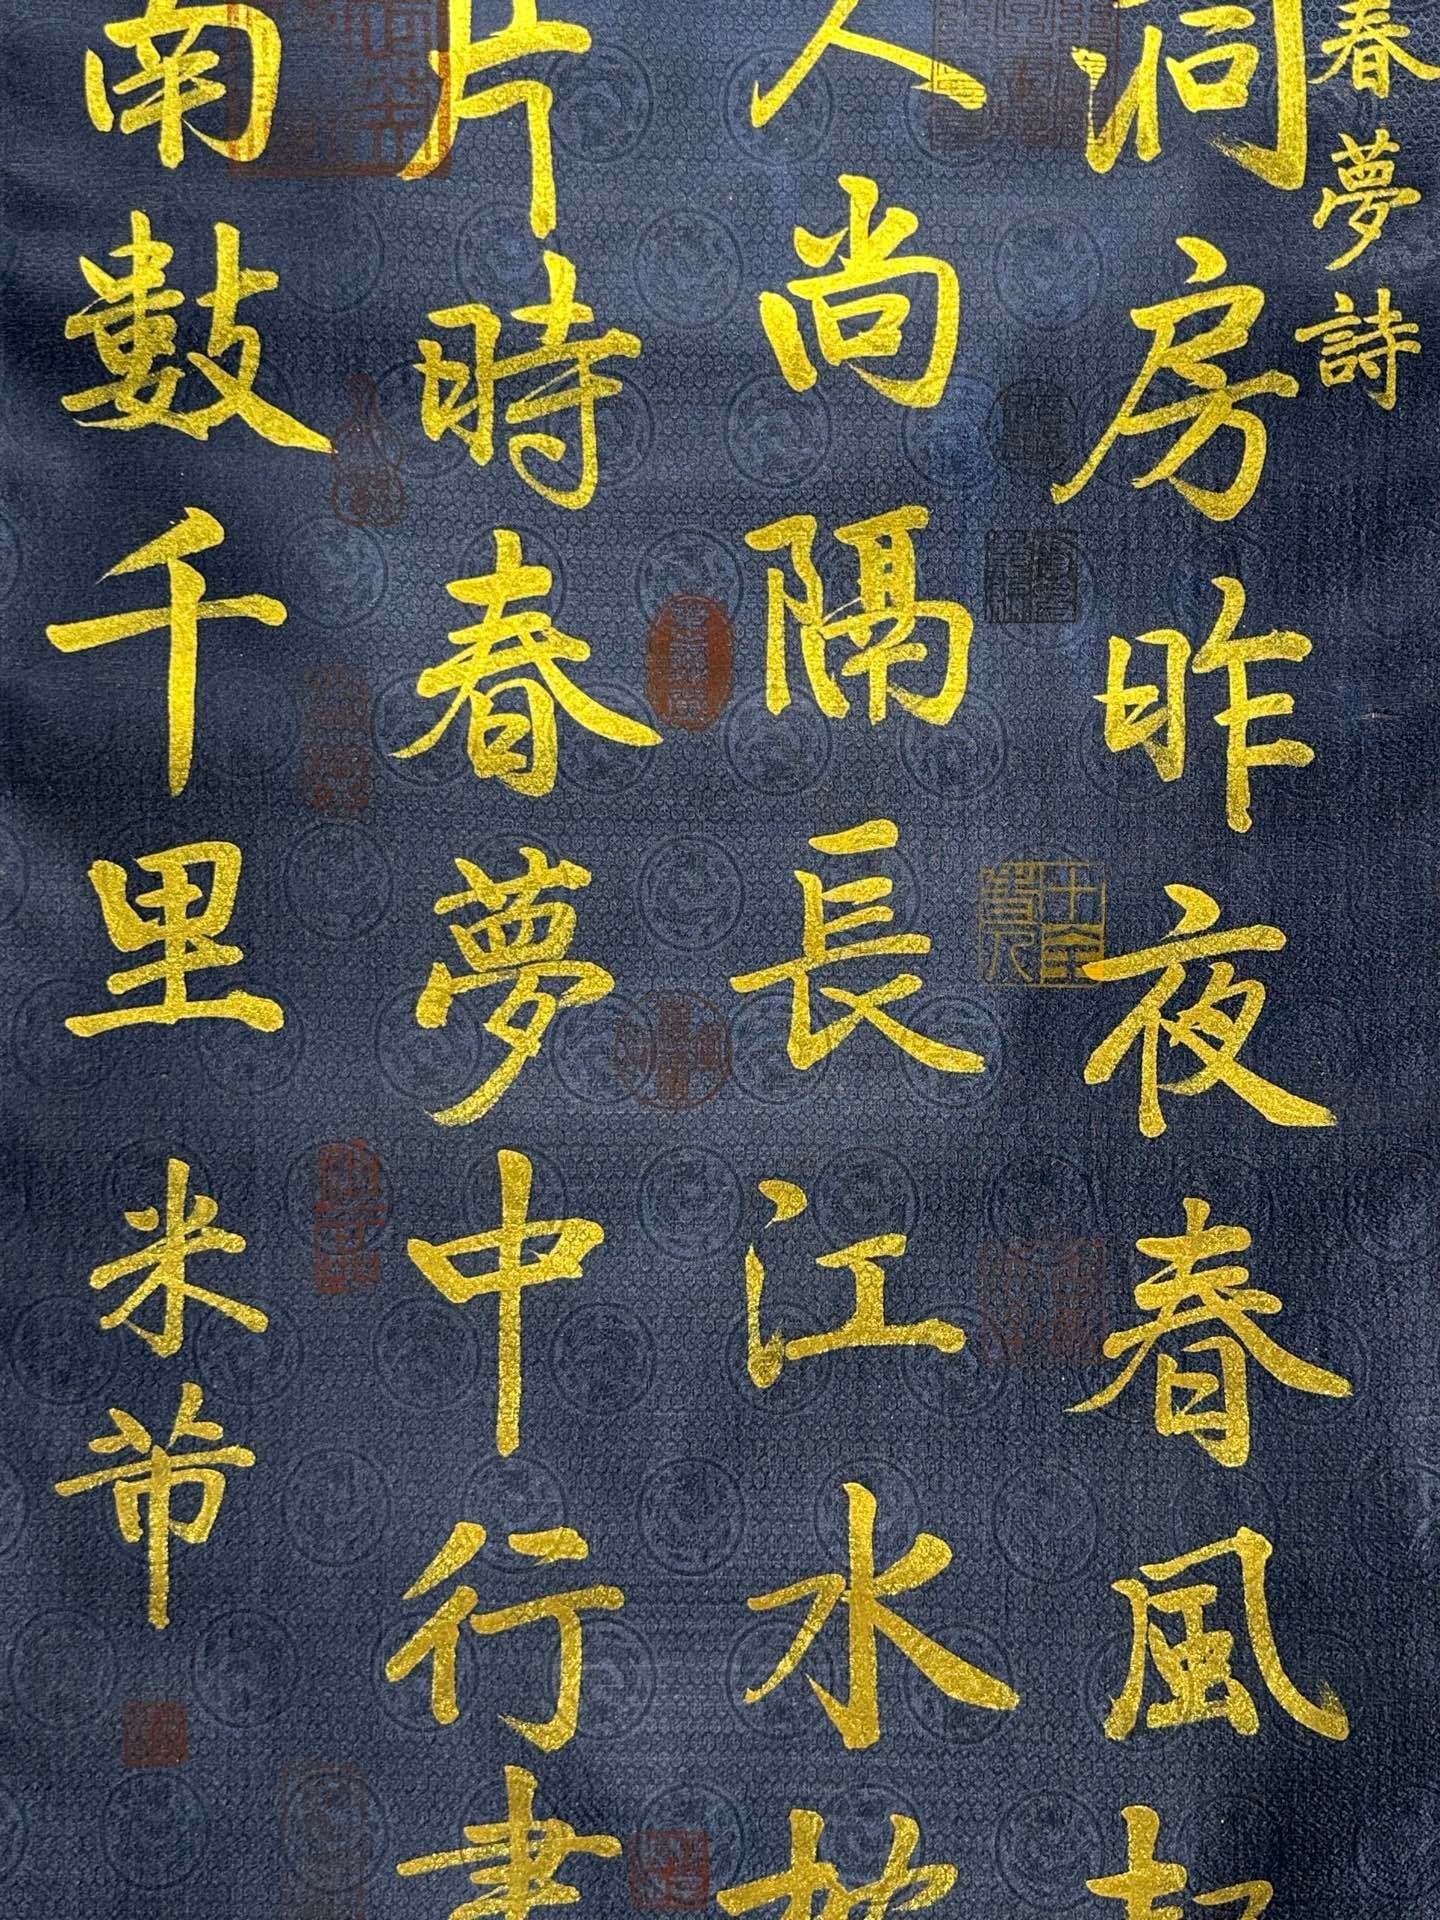 春夢詩
洞房昨夜春風起
人尚隔長江水枕
片時春夢中行盡
南數千里米芾
十全